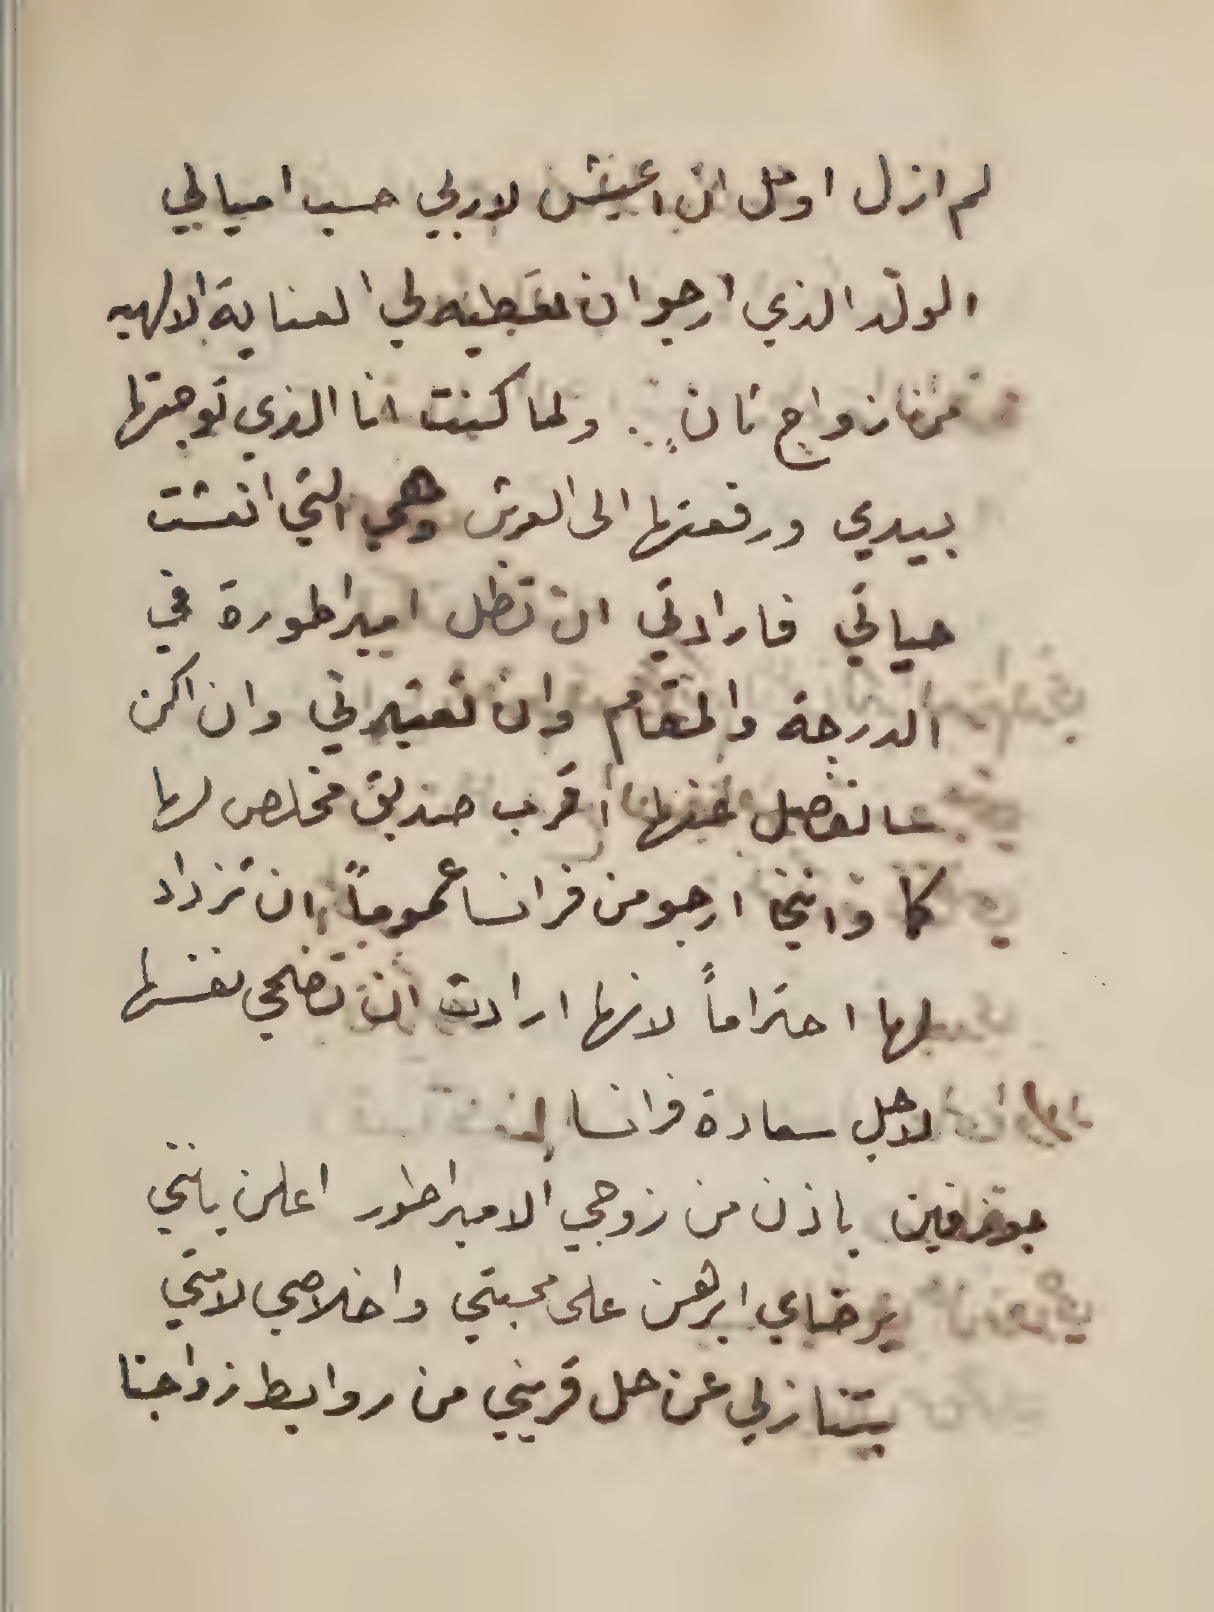 لم ازل اومل ان اعيش لاربي حسب اميالي
الولد الذي ارجو ان تعطيه لي العناية الالهيه
من زواج ثان .. ولما كنت انا الذي توجتها
بيدي ورفعتها الى العرش وهي التي انعشت
حياتي فارادتي ان تظل اميراطورة في
الدرجة والمقام وان تعتبراني وان اكن
سانفصل عنها اقرب صديق مخلص لها
كما وانني ارجو من فرانسا عموماً ان تزداد
لها احتراماً لانها ارادت ان تضحي نفسها
لاجل سعادة فرانسا
جوزفين باذن من زوجي الاميراطور اعلن بانني
برضاي ابرهن على محبتي واخلاصي لامتي
بتنازلي عن حل قريني من روابط زواجنا